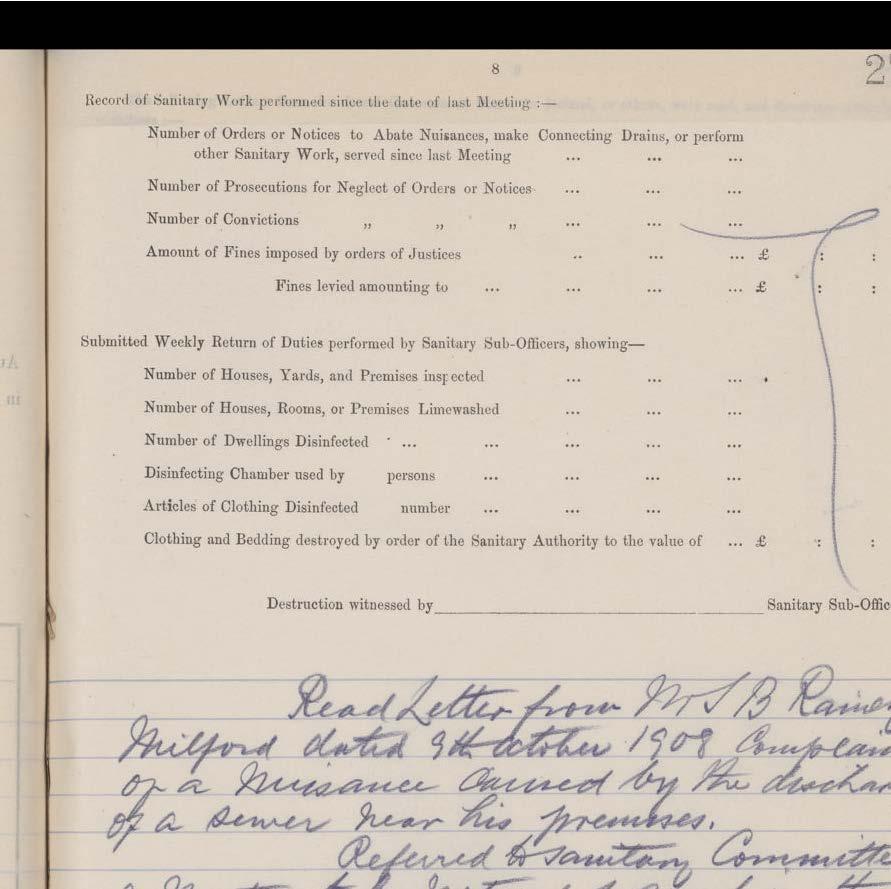 8
2
Record of Sanitary Work performed since the date of last Meeting :—
Number of Orders or Notices to Abate Nuisances, make Connecting Drains, or perform
other Sanitary Work, served since last Meeting ... ... ...
Number of Prosecutions for Neglect of Orders or Notices ... ... ...
Number of Convictions „ „ „ ... ... ...
Amount of Fines imposed by orders of Justices .. ... ... £ : :
Fines levied amounting to ... ... ... ... £ : :
Submitted Weekly Return of Duties performed by Sanitary Sub-Officers, showing—
Number of Houses, Yards, and Premises inspected ... ... ...
Number of Houses, Rooms, or Premises Limewashed ... ... ...
Number of Dwellings Disinfected ... ... ... ... ...
Disinfecting Chamber used by persons ... ... ... ...
Articles of Clothing Disinfected number ... ... ... ...
Clothing and Bedding destroyed by order of the Sanitary Authority to the value of ... £ : :
Destruction witnessed by Sanitary Sub-Offic
Read Letter from Mr S B
Milford dated 9th October 1908 Complain
of a Nuisance Caused by the dischar
of a sewer near his premises.
Referred to Sanitary Committe